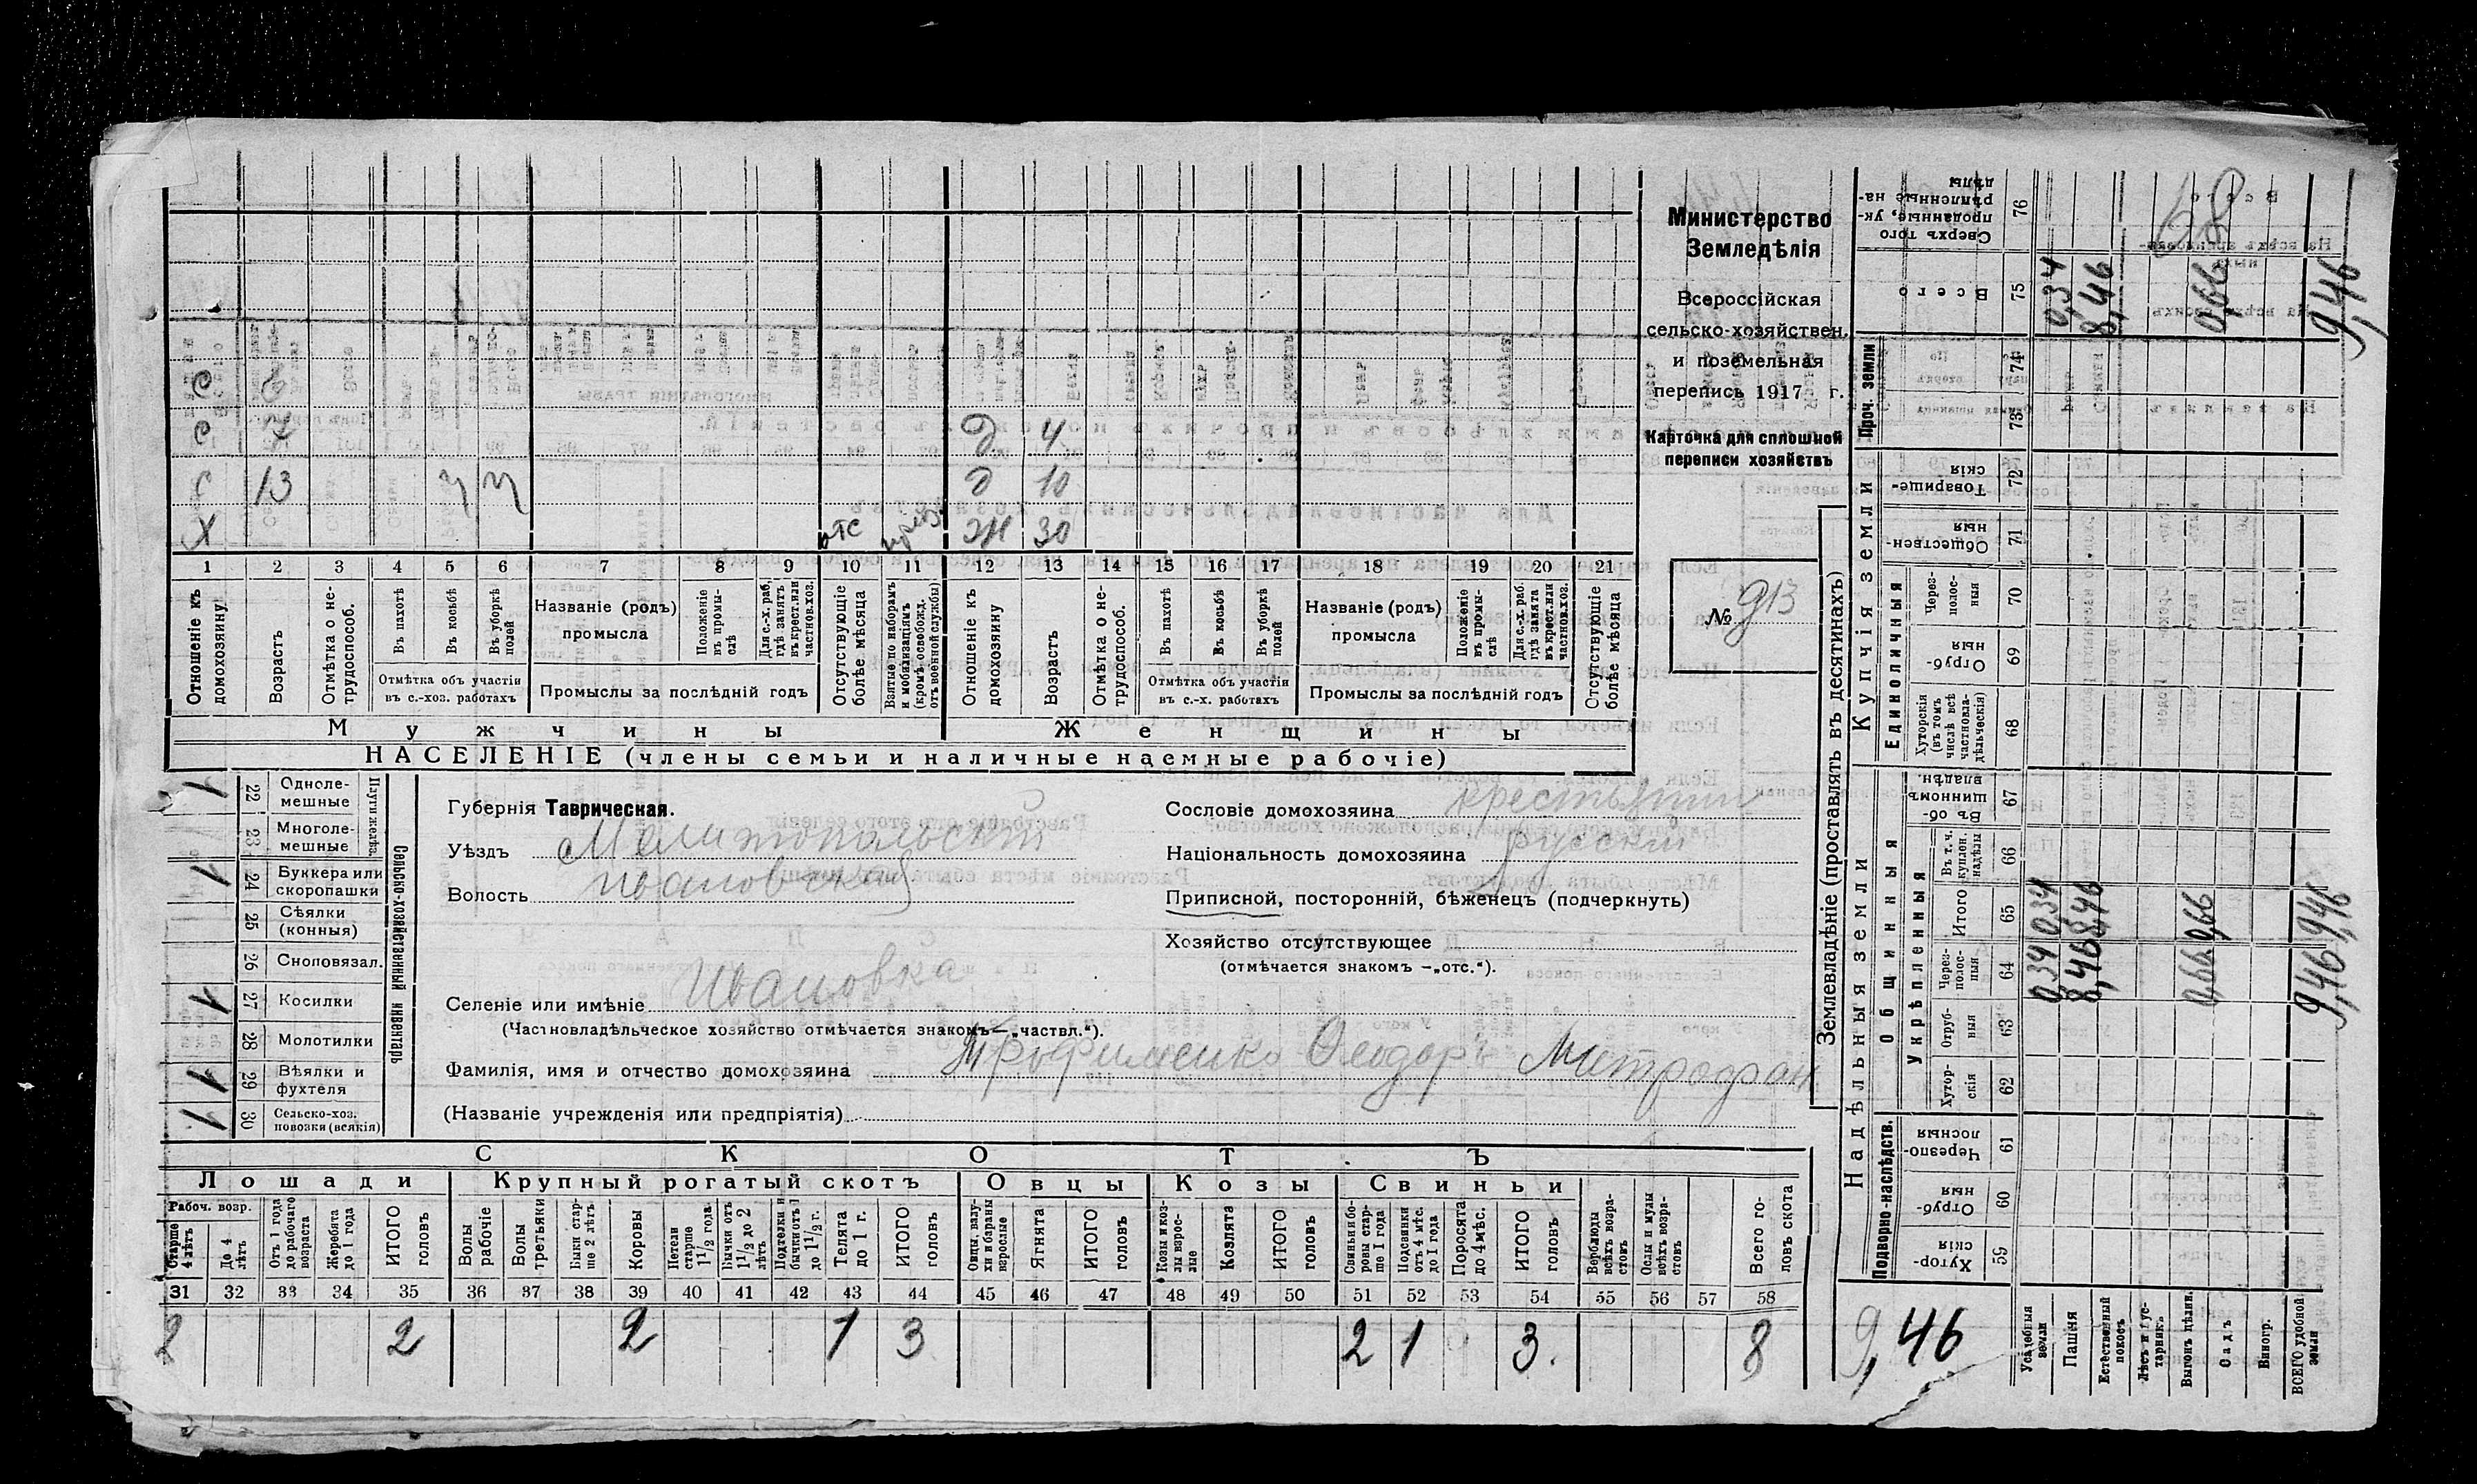 Министерство
Земледѣлія
Всероссійская
сельско-хозяйствен.
и поземельная
перепись 1917 г.
Карточка для сплошной
переписи хозяйствъ
№ 913
С
С 7 Д 4
С 13 У У Д 10
Х отс жн 30
1 2 3 4 5 6 7 8 9 10 11 12 13 14 15 16 17 18 19 20 21
Отношеніе къ домохозяину
Возрастъ
Отмѣтка о не-трудоспособ.
Въ пахотѣ
Въ косьбѣ
Въ уборкѣ полей
Отмѣтка объ участіи въ с.-хоз. работахъ
Названіе (родъ) промысла
Положеніе въ промы-слѣ
Для с.-х. раб, гдѣ занятъ въ крест. или частнов. хоз.
Промыслы за послѣдній годъ
Отсутствующіе болѣе мѣсяца
Взятые по наборамъ и мобилизаціямъ (кромѣ освобожд. отъ военной службы)
Отношеніе къ домохозяину
Возрастъ
Отмѣтка о не-трудоспособ.
Въ пахотѣ
Въ косьбѣ
Въ уборкѣ полей
Отмѣтка объ участіи въ с.-х. работахъ
Названіе (родъ) промысла
Положеніе въ промы-слѣ
Для с.-х. раб. гдѣ занята въ крест. или частнов. хоз.
Промыслы за послѣдній годъ
Отсутствующіе болѣе мѣсяца
Мужчины Женщины
НАСЕЛЕНІЕ (члены семьи и наличные наемные рабочіе)
1 22 Одноле-мешные
23 Многоле-мешные
Плуги желѣз.
1 24 Буккера или скоропашки
25 Сѣялки (конныя)
26 Сноповязал.
1 27 Косилки
28 Молотилки
1 29 Вѣялки и фухтеля
1 30 Сельско-хоз. повозки (всякія)
Сельско-хозяйственный инвентарь
Губернія Таврическая.
Уѣздъ Мелитопольскій
Волость Ивановская
Селеніе или имѣніе Ивановка
(Частновладѣльческое хозяйство отмѣчается знакомъ — „частвл.“).
Фамилія, имя и отчество домохозяина Трофименко Феодоръ Митрофан
(Названіе учрежденія или предпріятія)
Сословіе домохозяина крестьянин
Національность домохозяина русскій
Приписной, посторонній, бѣженецъ (подчеркнуть)
Хозяйство отсутствующее
(отмѣчается знакомъ — „отс.“).
СКОТЪ
Лошади Крупный рогатый скотъ Овцы Козы Свиньи
Рабоч. возр.
Старше 4 лѣтъ
До 4 лѣтъ
Отъ 1 года до рабочаго возраста
Жеребята до 1 года
ИТОГО головъ
Волы рабочіе
Волы третьяки
Быки стар-ше 2 лѣтъ
Коровы
Нетели старше 1½ года
Бычки отъ 1½ до 2 лѣтъ
Подтелки и бычки отъ 1 до 1½ г.
Телята до 1 г.
ИТОГО головъ
Овцы, валу-хи и бараны взрослые
Ягнята
ИТОГО головъ
Козы и коз-лы взрос-лые
Козлята
ИТОГО головъ
Свиньи и бо-ровы стар-ше 1 года
Подсвинки отъ 4 мѣс. до 1 года
Поросята до 4 мѣс.
ИТОГО головъ
Верблюды всѣхъ возра-стовъ
Ослы и мулы всѣхъ возра-стовъ
Всего го-ловъ скота
31 32 33 34 35 36 37 38 39 40 41 42 43 44 45 46 47 48 49 50 51 52 53 54 55 56 57 58
2 2 2 1 3 2 1 3. 8
Землевладѣніе (проставлять въ десятинахъ)
Надѣльныя земли
Купчія земли
Проч. земли
Подворно-наслѣдств.
Общинныя
Укрѣпленныя
Единоличныя
Хутор-скія 59
Отруб-ныя 60
Черезпо-лосныя 61
Хутор-скія 62
Отруб-ныя 63
Черезполос-ныя 64
Итого 65
Въ т. ч. куплен. надѣлы 66
Въ об-щинномъ владѣн. 67
Хуторскія (въ томъ числѣ всѣ частновла-дѣльческія) 68
Отруб-ныя 69
Через-полос-ныя 70
Обществен-ныя 71
Товарище-скія 72
73
74
Всего 75
Сверхъ того проданные, ук-рѣпленные на-дѣлы 76
9,46
Усадебныя земли 0,34 0,34 0,34
Пашня 8,46 8,46 8,46
Естественный покосъ
Лѣсъ и кус-тарникъ
Выгонъ цѣлин. 0,66 0,66 0,66
Садъ
Виногр.
ВСЕГО удобной земли 9,46 9,46 9,46
68